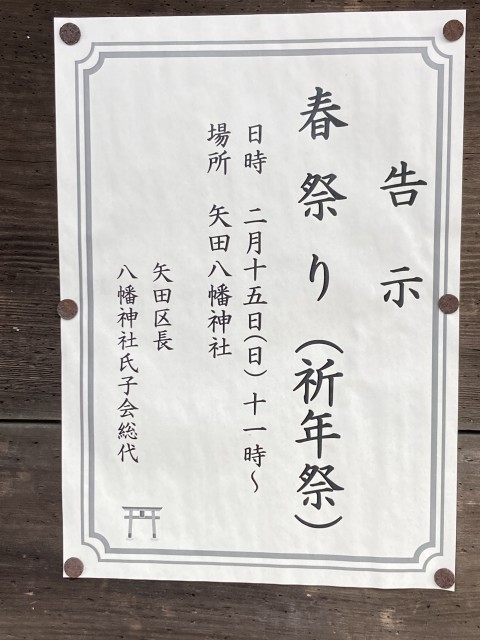 告示
春祭り（祈年祭）
日時　二月十五日(日)　十一時〜
場所　矢田八幡神社
矢田区長
八幡神社氏子会総代